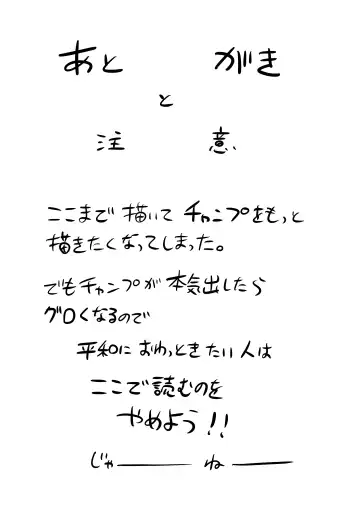 あとがき
と
注意
ここまで描いてチャンプをもっと
描きたくなってしまった。
でもチャンプが本気出したら
グロくなるので
平和におわっときたい人は
ここで読むのを
やめよう!!
じゃーーねーー